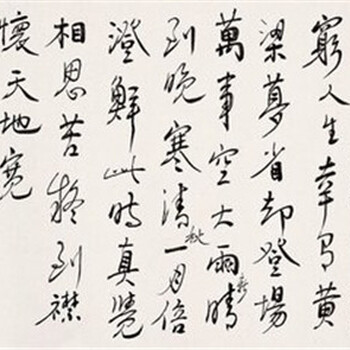 窮人生幸有黄
梁夢省却登場
萬事空大雨新晴
到晚寒清秋一月倍
澄鮮此時真覺
相思苦移到襟
懷天地寬